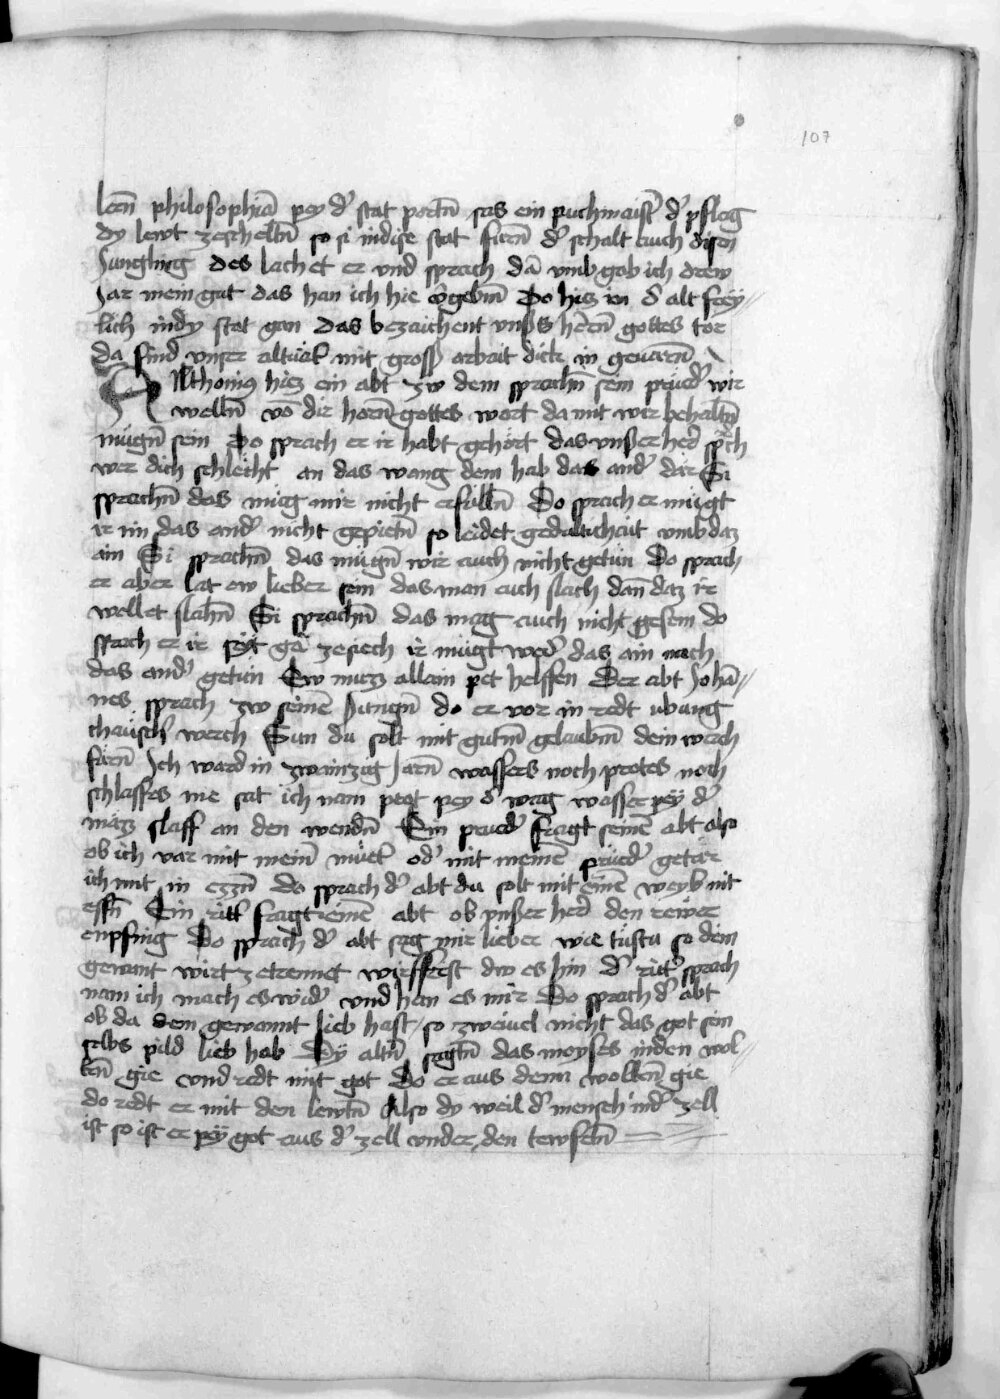 107
lern philosophia pey der stat portn sas ein puchmaister der pflag
dy lewt zeschelten so si in dise stat furn der schalt auch disen
Jungling des lachet er und sprach da umb gab ich drew
Jar mein gut das han ich hie vergebm Do hiez in der alt frey//
lich in dy stat gan das bezaichent unsers herrn gottes tor
da sind unser altuät mit grosser arbait dick in gevarn
Anthonius hiez ein abt zw dem sprachn sein prüeder wir
welln von dir horn gottes wort da mit wir behaltn
mügn sein Do sprach er ir habt gehört das unser herr sprach
wer dich schlecht an das wang dem hab das ander dar Si
sprachn das mug wir nicht erfülln Do sprach er mügt
ir im das ander nicht gepietn so leidet gedultichait umb daz
ain Si sprachn das mügn wir auch nicht getun Do sprach
er aber lat ew lieber sein das man euch slach dan daz ir
wellet slahn Si sprachn das mag auch nicht gesein do
sprach er ir seyt gar zesiech ir mügt weder das ain noch
das ander getün Ew muezz allain pet helffen Der abt Johan//
nes sprach zw seinem Jungern do er vor in redt ubung
werch Sun du solt mit gutem gelaubm dein werch
fürn Ich ward in zwainzig Jarn wassers noch protes noch
schlaffes nie sat ich nam prot pey der wag wasser pey der
mazz slaff an den wendn Ein prueder fragt seinen abt also
ob ich var mit meiner müeter oder mit meinem prüeder getar
ich mit in ezzn do sprach der abt du solt mit einem weyb nit
essen Ein ritter fragt einen abt ob unser herr den rewer
enpfing Do sprach der abt sag mir lieber wie tüstu so dein
gewant wirt zetrennet wirffest dw es hin der ritter sprach
nain ich mach es wider und han es mir Do sprach der abt
ob du dein gewannt lieb hast so zweivel nicht das got sein
selbs pild lieb hab Dy altn sagtn das moyses in den wol//
ken gie und redt mit got Do er aus dem wolken gie
do redt er mit den lewtn Also dy weil der mensch in der zell
ist so ist er pey got aus der zell under den tewfeln